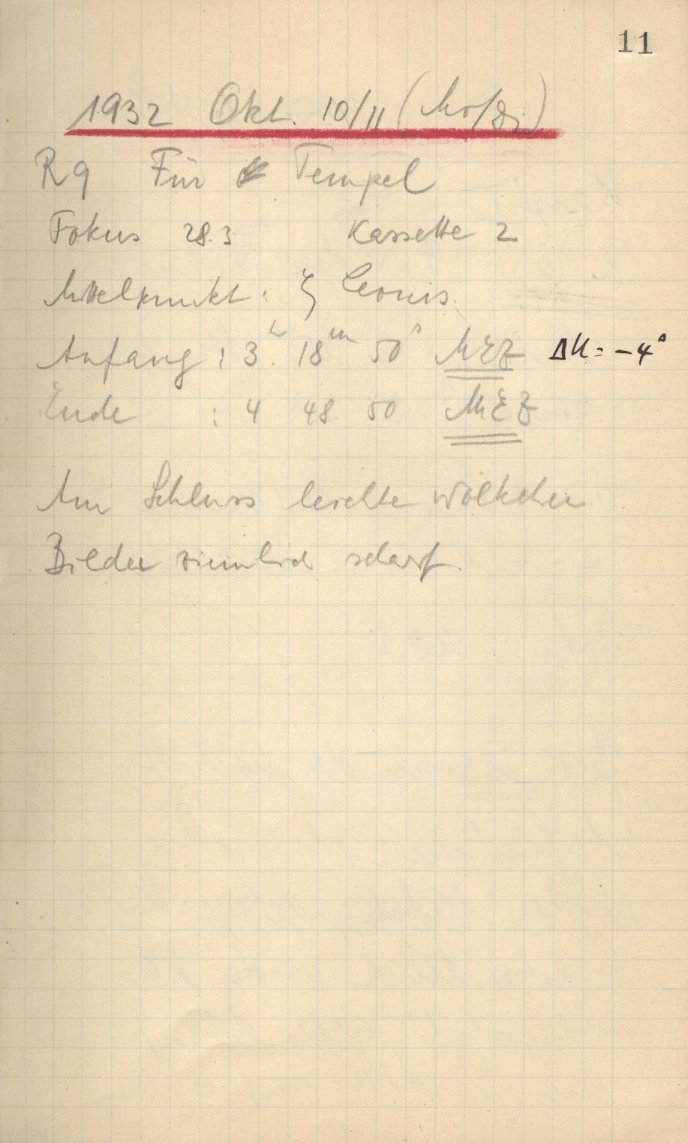 11
1932 Okt. 10/11 (Mo/Di)
R9 Für Tempel
Fokus 28.3 Kassette 2
Mittelpunkt: ζ Leonis.
Anfang : 3h 18m 50s MEZ ΔU = -4s
Ende : 4 48 50 MEZ
Am Schluss leichte Wölkchen
Bilder ziemlich scharf.